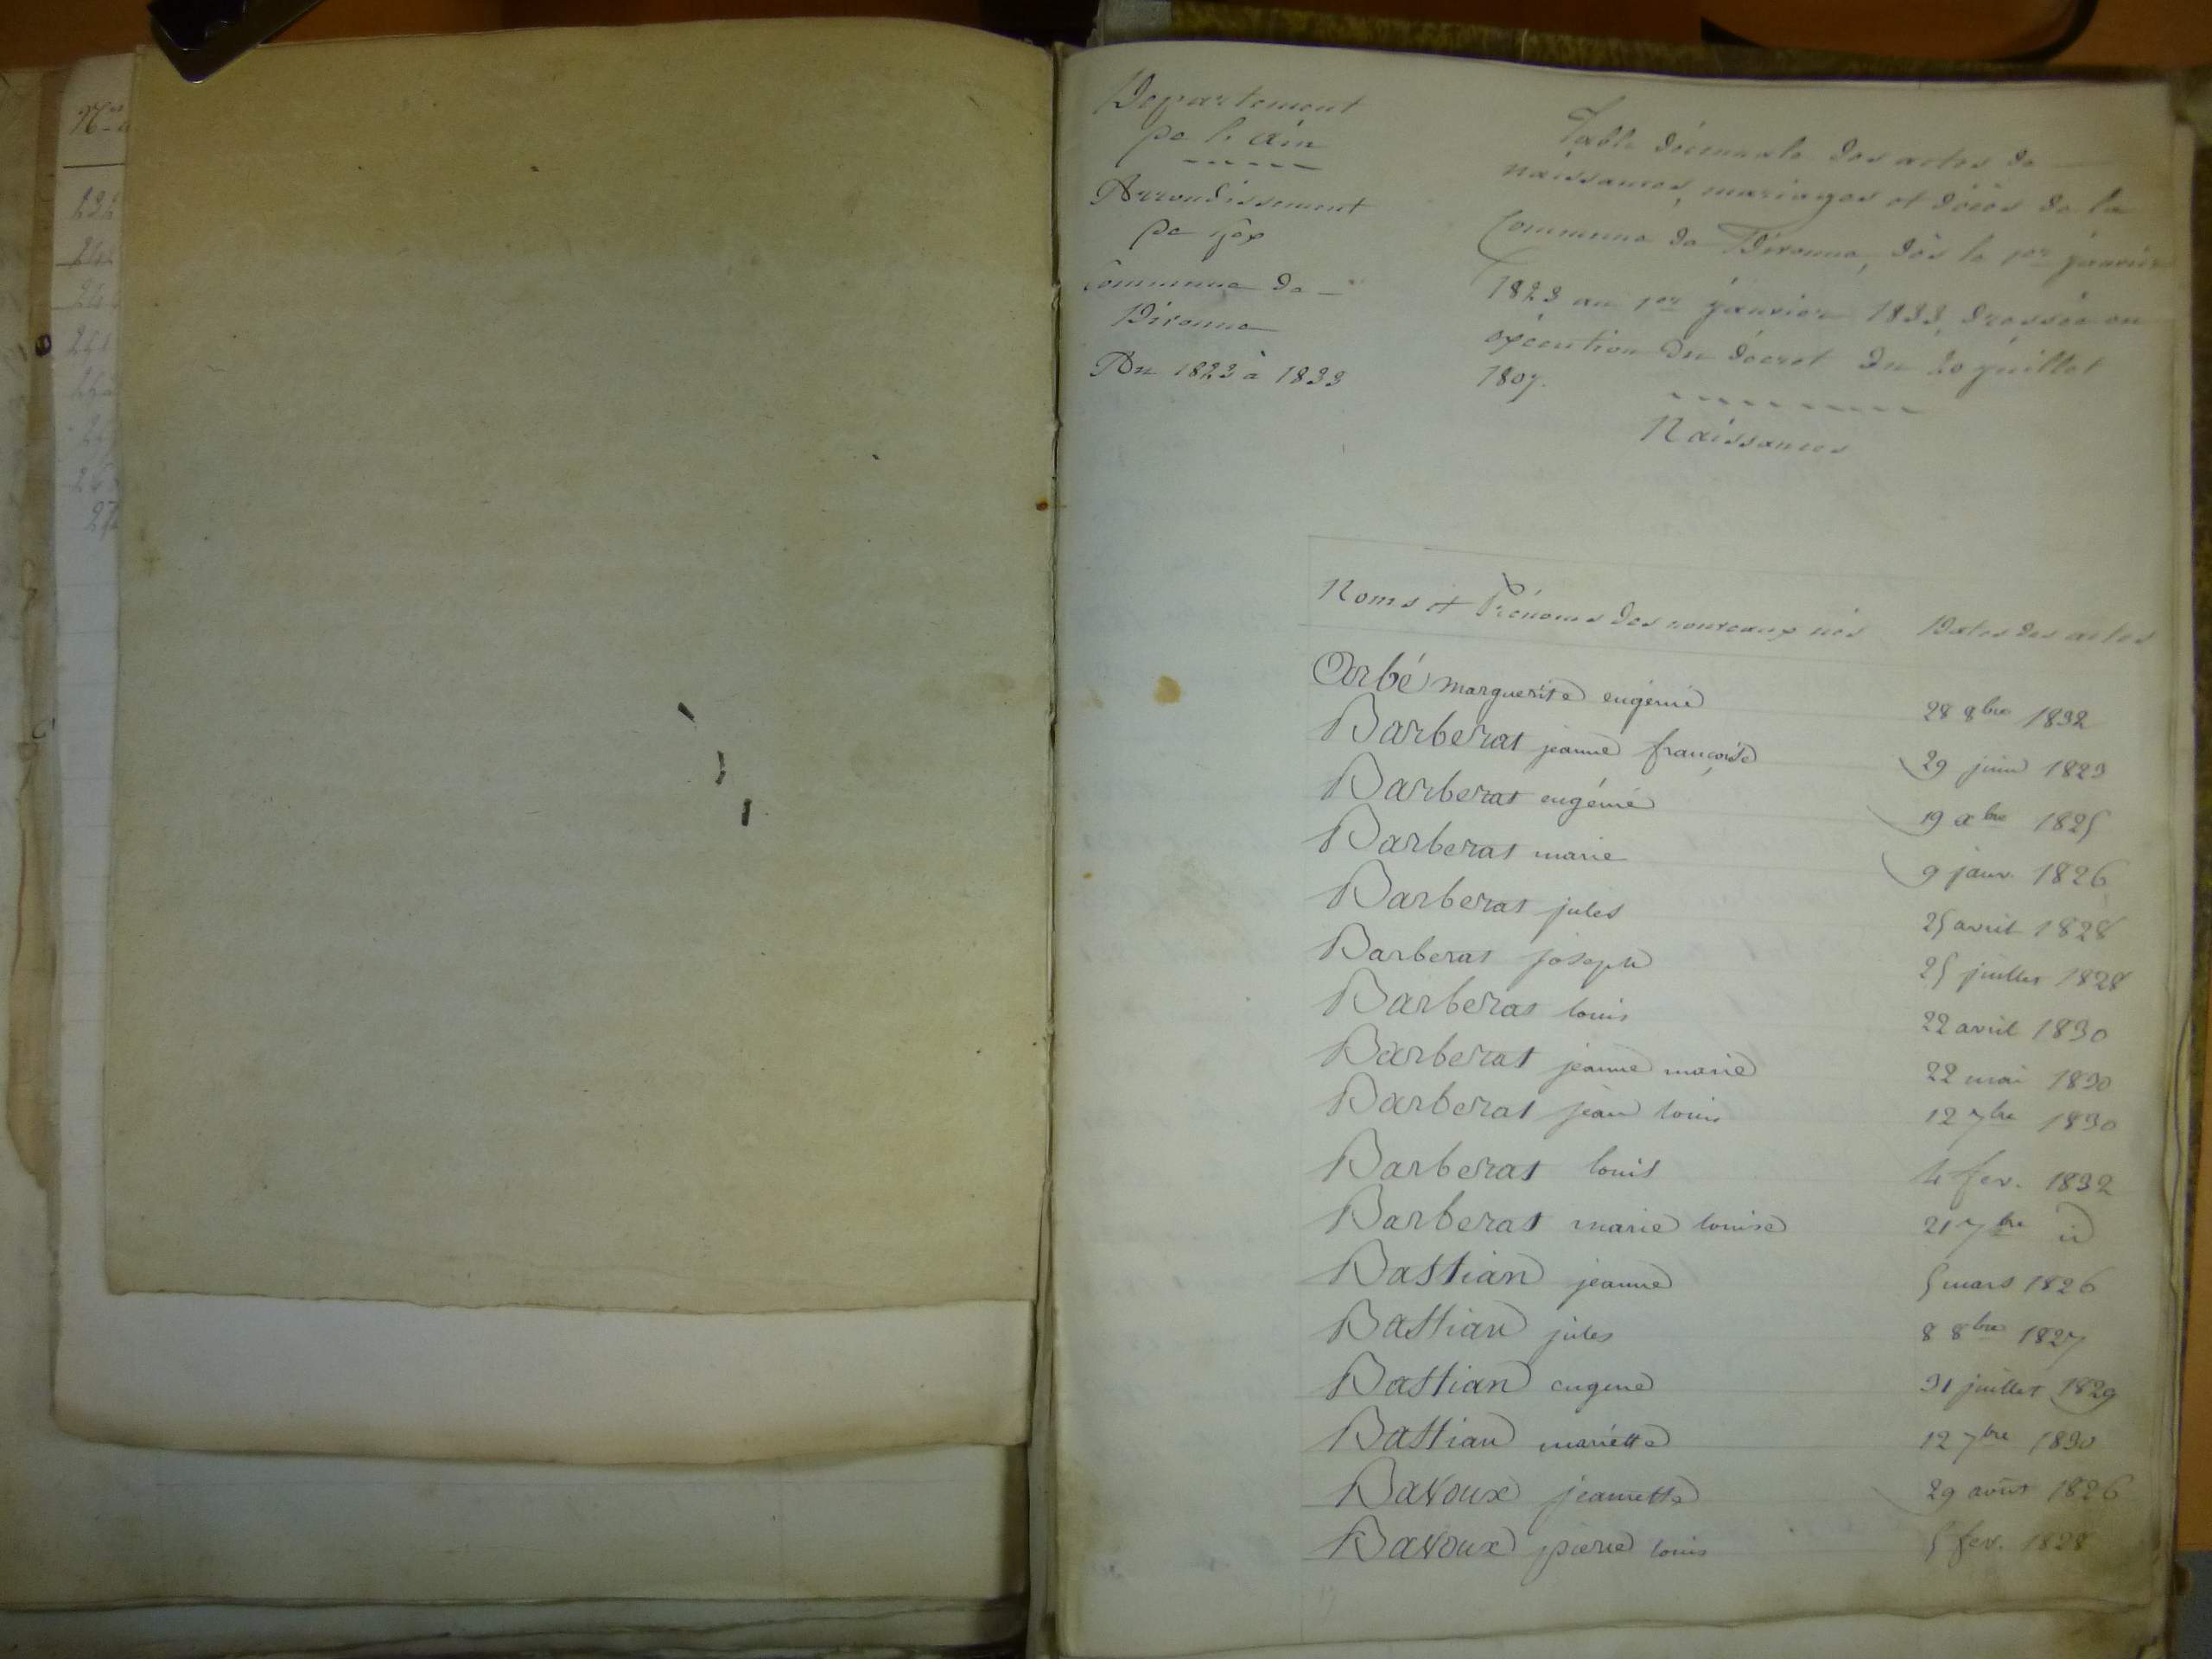 Departement
de l'ain
Arrondissement
de géx
Commune de
Divonne
An 1823 à 1833
Table décennale des actes de
naissances, mariages et décès de la
Commune de Divonne, dès le 1er janvier
1823 au 1er janvier 1833, dressée en
exécution du décret du 20 juillet
1807.
Naissances
Noms et Prénoms des nouveaux nés Dates des actes
Arbé marguerite eugénie 28 8bre 1832
Barberat jeanne françoise 29 juin 1823
Barberat eugénie 19 xbre 1825
Barberat marie 9 janv. 1826
Barberat jules 25 avril 1828
Barberat joseph 25 juillet 1828
Barberat louis 22 avril 1830
Barberat jeanne marie 22 mai 1830
Barberat jean louis 12 7bre 1830
Barberat louis 4 fev. 1832
Barberat marie louise 21 7bre id
Bastian jeanne 5 mars 1826
Bastian jules 8 8bre 1827
Bastian eugene 31 juillet 1829
Bastian mariette 12 7bre 1830
Bavoux jeannette 29 août 1826
Bavoux pierre louis 5 fev. 1828